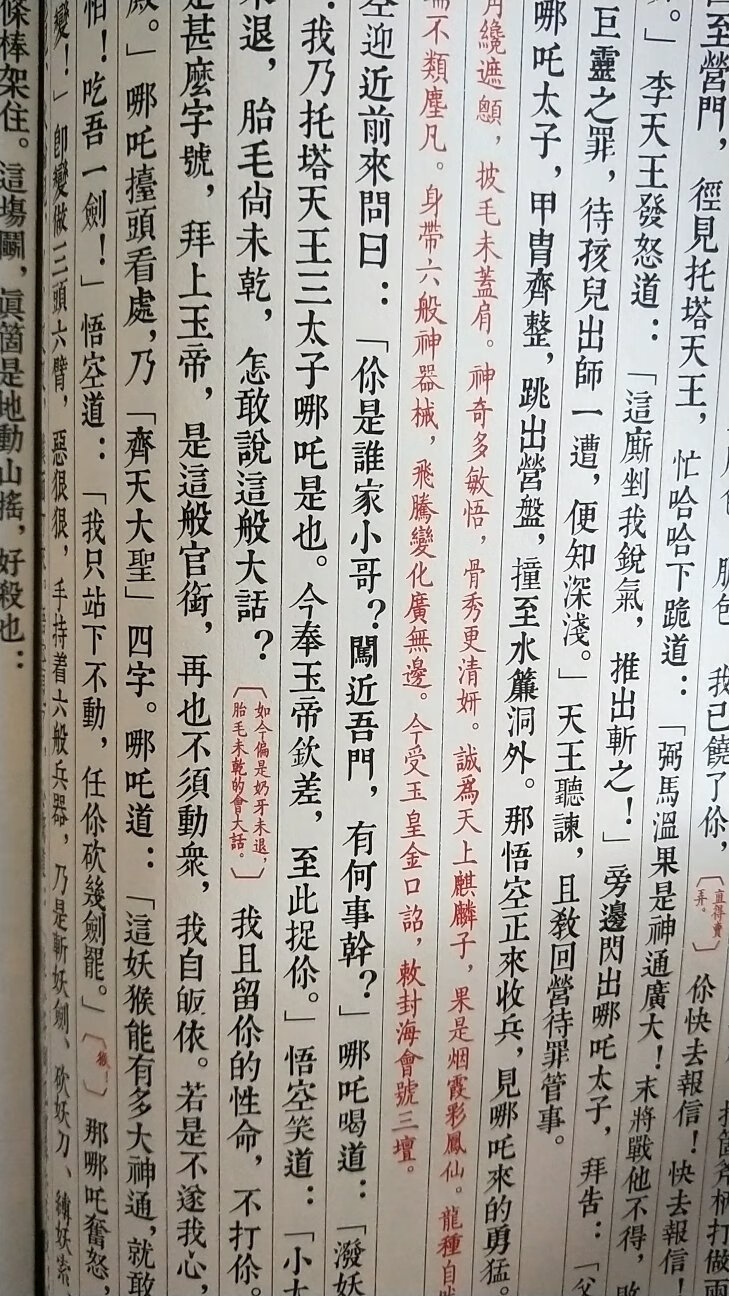 我已饒了你，〔直得賣弄。〕你快去報信！快去報信！
回至營門，徑見托塔天王，忙哈哈下跪道：「弼馬溫果是神通廣大！末將戰他不得，
。」李天王發怒道：「這廝剉我銳氣，推出斬之！」旁邊閃出哪吒太子，拜告：「父
巨靈之罪，待孩兒出師一遭，便知深淺。」天王聽諫，且教回營待罪管事。
哪吒太子，甲冑齊整，跳出營盤，撞至水簾洞外。那悟空正來收兵，見哪吒來的勇猛。
纔遮顖，披毛未蓋肩。神奇多敏悟，骨秀更清妍。誠為天上麒麟子，果是烟霞彩鳳仙。龍種自
不類塵凡。身帶六般神器械，飛騰變化廣無邊。今受玉皇金口詔，敕封海會號三壇。
空迎近前來問曰：「你是誰家小哥？闖近吾門，有何事幹？」哪吒喝道：「潑妖
我乃托塔天王三太子哪吒是也。今奉玉帝欽差，至此捉你。」悟空笑道：「小太
未退，胎毛尚未乾，怎敢說這般大話？〔如今偏是奶牙未退，胎毛未乾的會大話。〕我且留你的性命，不打你。
是甚麼字號，拜上玉帝，是這般官銜，再也不須動眾，我自皈依。若是不遂我心，
殿。」哪吒擡頭看處，乃「齊天大聖」四字。哪吒道：「這妖猴能有多大神通，就敢
怕！吃吾一劍！」悟空道：「我只站下不動，任你砍幾劍罷。」〔〕那哪吒奮怒，
變！」卽變做三頭六臂，惡狠狠，手持着六般兵器，乃是斬妖劍、砍妖刀、縛妖索、
條棒架住。這場鬭，眞箇是地動山搖，好殺也：